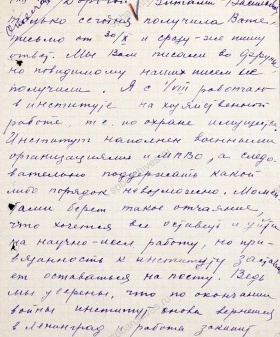 Дорогой Виталий
только сегодня получила Ваше
письмо от 30/X и сразу же пишу
ответ. Мы Вам писали во
но повидимому наших писем не
получили. А с 1/VIII работаю
в институте на хозяйственной
работе, т.е. по охране имущества
Институт наполнен военными
организациями и МПВО, а следо
вательно поддержать какой
либо порядок невозможно. Момен
тами берет такое отчаяние,
что хочется все оставить и уйти
на научно-иссл работу, но при
вязанность к институту застав
ет оставаться на посту. Ведь
мы уверены, что по окончании
войны институт снова вернется
в Ленинград и работа закипит